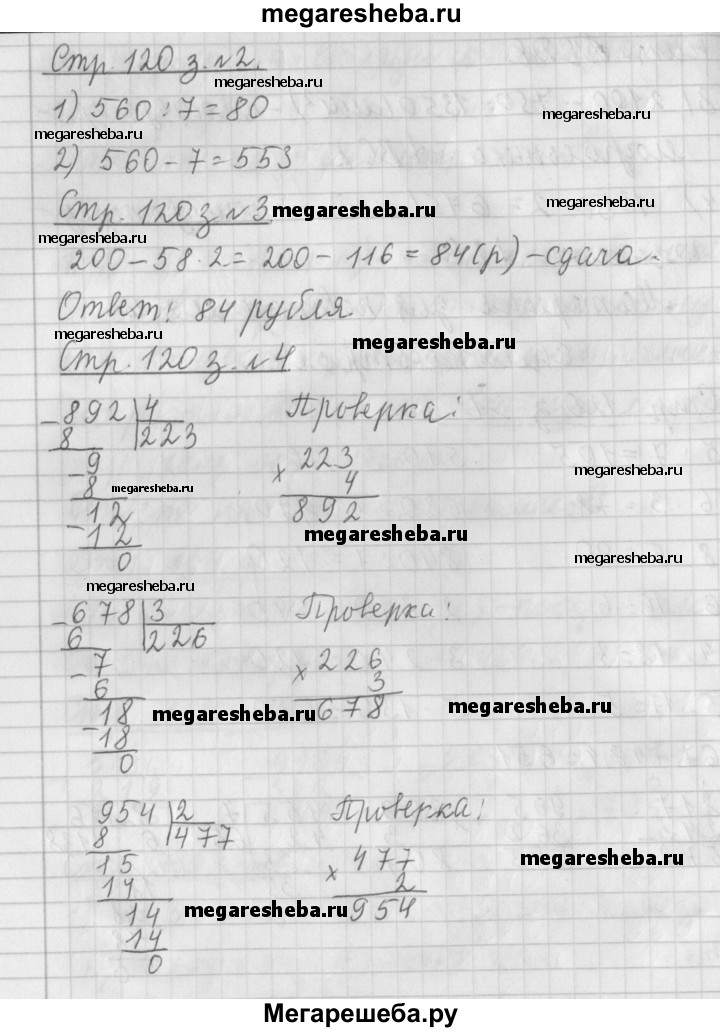 megaresheba.ru
Стр. 120 з. №2.
megaresheba.ru
1) 560 : 7 = 80
megaresheba.ru
megaresheba.ru
2) 560 - 7 = 553
Стр. 120 з №3
megaresheba.ru
megaresheba.ru
200 - 58 · 2 = 200 - 116 = 84(р) - сдача.
Ответ: 84 рубля
megaresheba.ru
megaresheba.ru
Стр. 120 з. №4
- 892 | 4
8 223
- 9
8
megaresheba.ru
- 12
12
0
Проверка:
x 223
4
892
megaresheba.ru
megaresheba.ru
megaresheba.ru
megaresheba.ru
- 678 | 3
6 226
- 7
6
- 18
18
0
Проверка:
x 226
3
678
megaresheba.ru
megaresheba.ru
954 | 2
8 477
15
14
14
14
0
Проверка:
x 477
2
954
megaresheba.ru
megaresheba.ru
Мегарешеба.ру